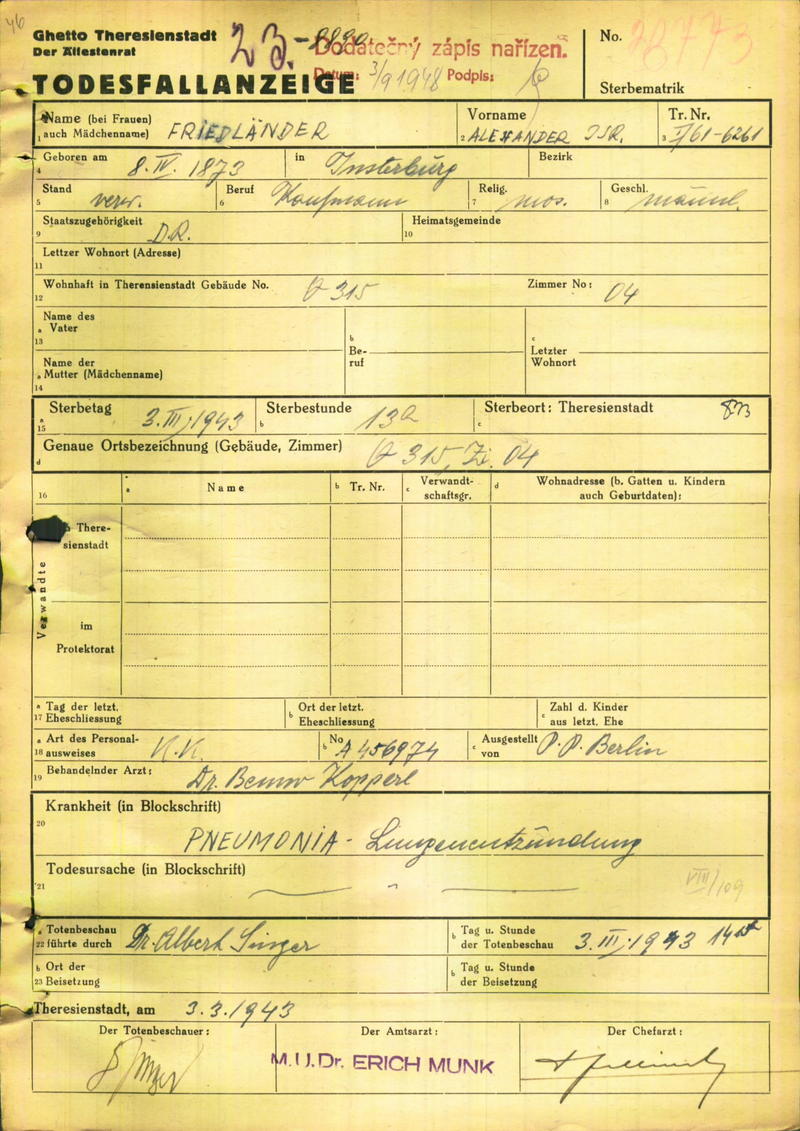 46
Ghetto Theresienstadt
Der Ältestenrat
23.
Dodatečný zápis nařízen.
Datum: 3/9 1948 Podpis:
No. 28773
TODESFALLANZEIGE
Sterbematrik
Name (bei Frauen) auch Mädchenname) FRIEDLÄNDER
1
Vorname
2 ALEXANDER ISR.
Tr. Nr.
3 I/61-6261
Geboren am 8. IV. 1873 in Insterburg Bezirk
4
Stand verw. Beruf Kaufmann Relig. mos. Geschl. männl.
5 6 7 8
Staatszugehörigkeit D.R. Heimatsgemeinde
9 10
Lettzer Wohnort (Adresse)
11
Wohnhaft in Therensienstadt Gebäude No. Q 315 Zimmer No: 04
12
Name des
a Vater
13
b
Be-
ruf
c
Letzter
Wohnort
Name der
a Mutter (Mädchenname)
14
Sterbetag 3. III. 1943 Sterbestunde 13 Sterbeort: Theresienstadt
a
15 b c
Genaue Ortsbezeichnung (Gebäude, Zimmer) Q 315, Zi. 04
d
16 a Name b Tr. Nr. c Verwandt-
schaftsgr. d Wohnadresse (b. Gatten u. Kindern
auch Geburtdaten):
Verwandte
There-
sienstadt
im
Protektorat
a Tag der letzt.
17 Eheschliessung
b Ort der letzt.
Eheschliessung
c Zahl d. Kinder
aus letzt. Ehe
a Art des Personal-
18 ausweises K.K.
b No A 456974
c Ausgestellt
von P.P. Berlin
Behandelnder Arzt: Dr. Benno Kopperl
19
Krankheit (in Blockschrift)
20
PNEUMONIA - Lungenentzündung
Todesursache (in Blockschrift)
21
VIII/109
a Totenbeschau
22 führte durch Dr. Albert Singer
b Tag u. Stunde
der Totenbeschau 3. III. 1943 14
b Ort der
23 Beisetzung
b Tag u. Stunde
der Beisetzung
Theresienstadt, am 3.3.1943
Der Totenbeschauer:
Der Amtsarzt:
Der Chefarzt:
M.U.Dr. ERICH MUNK